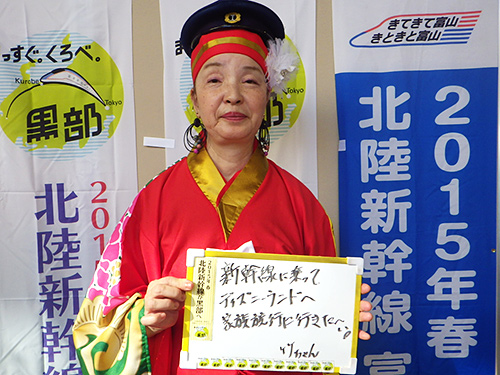 っすぐ。くろべ。
Kurobe
Tokyo
黒部
2015
北陸新幹線
Tokyo
きてきて富山
きときと富山
2015年春
北陸新幹線 富
北陸新幹線が黒部へ
新幹線に乗って
ディズニーランドへ
家族旅行に行きたい